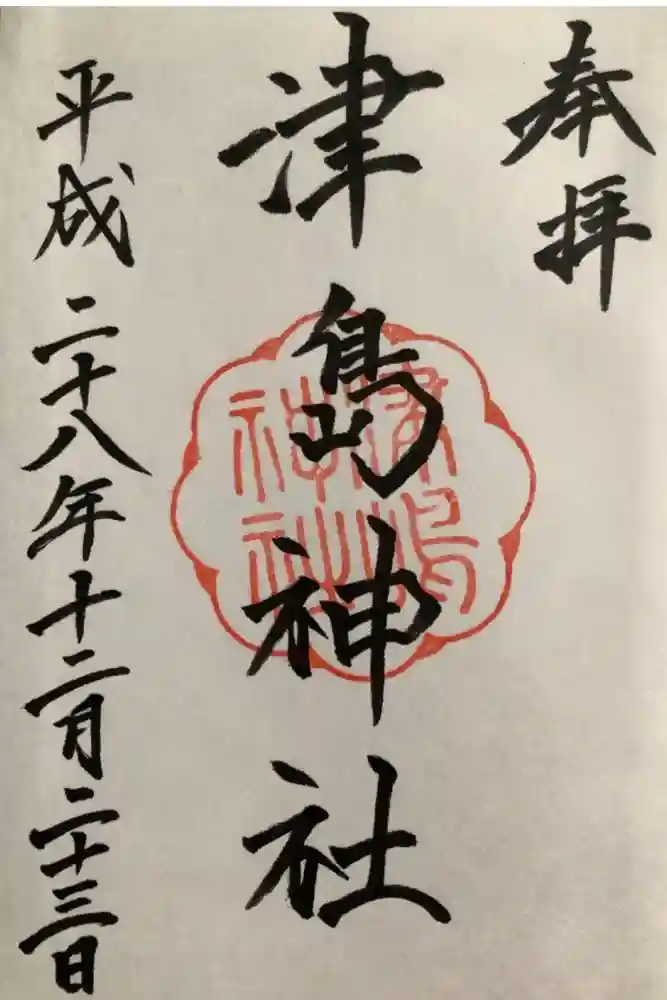 奉拝
津島神社
津島神社
平成二十八年十二月二十三日